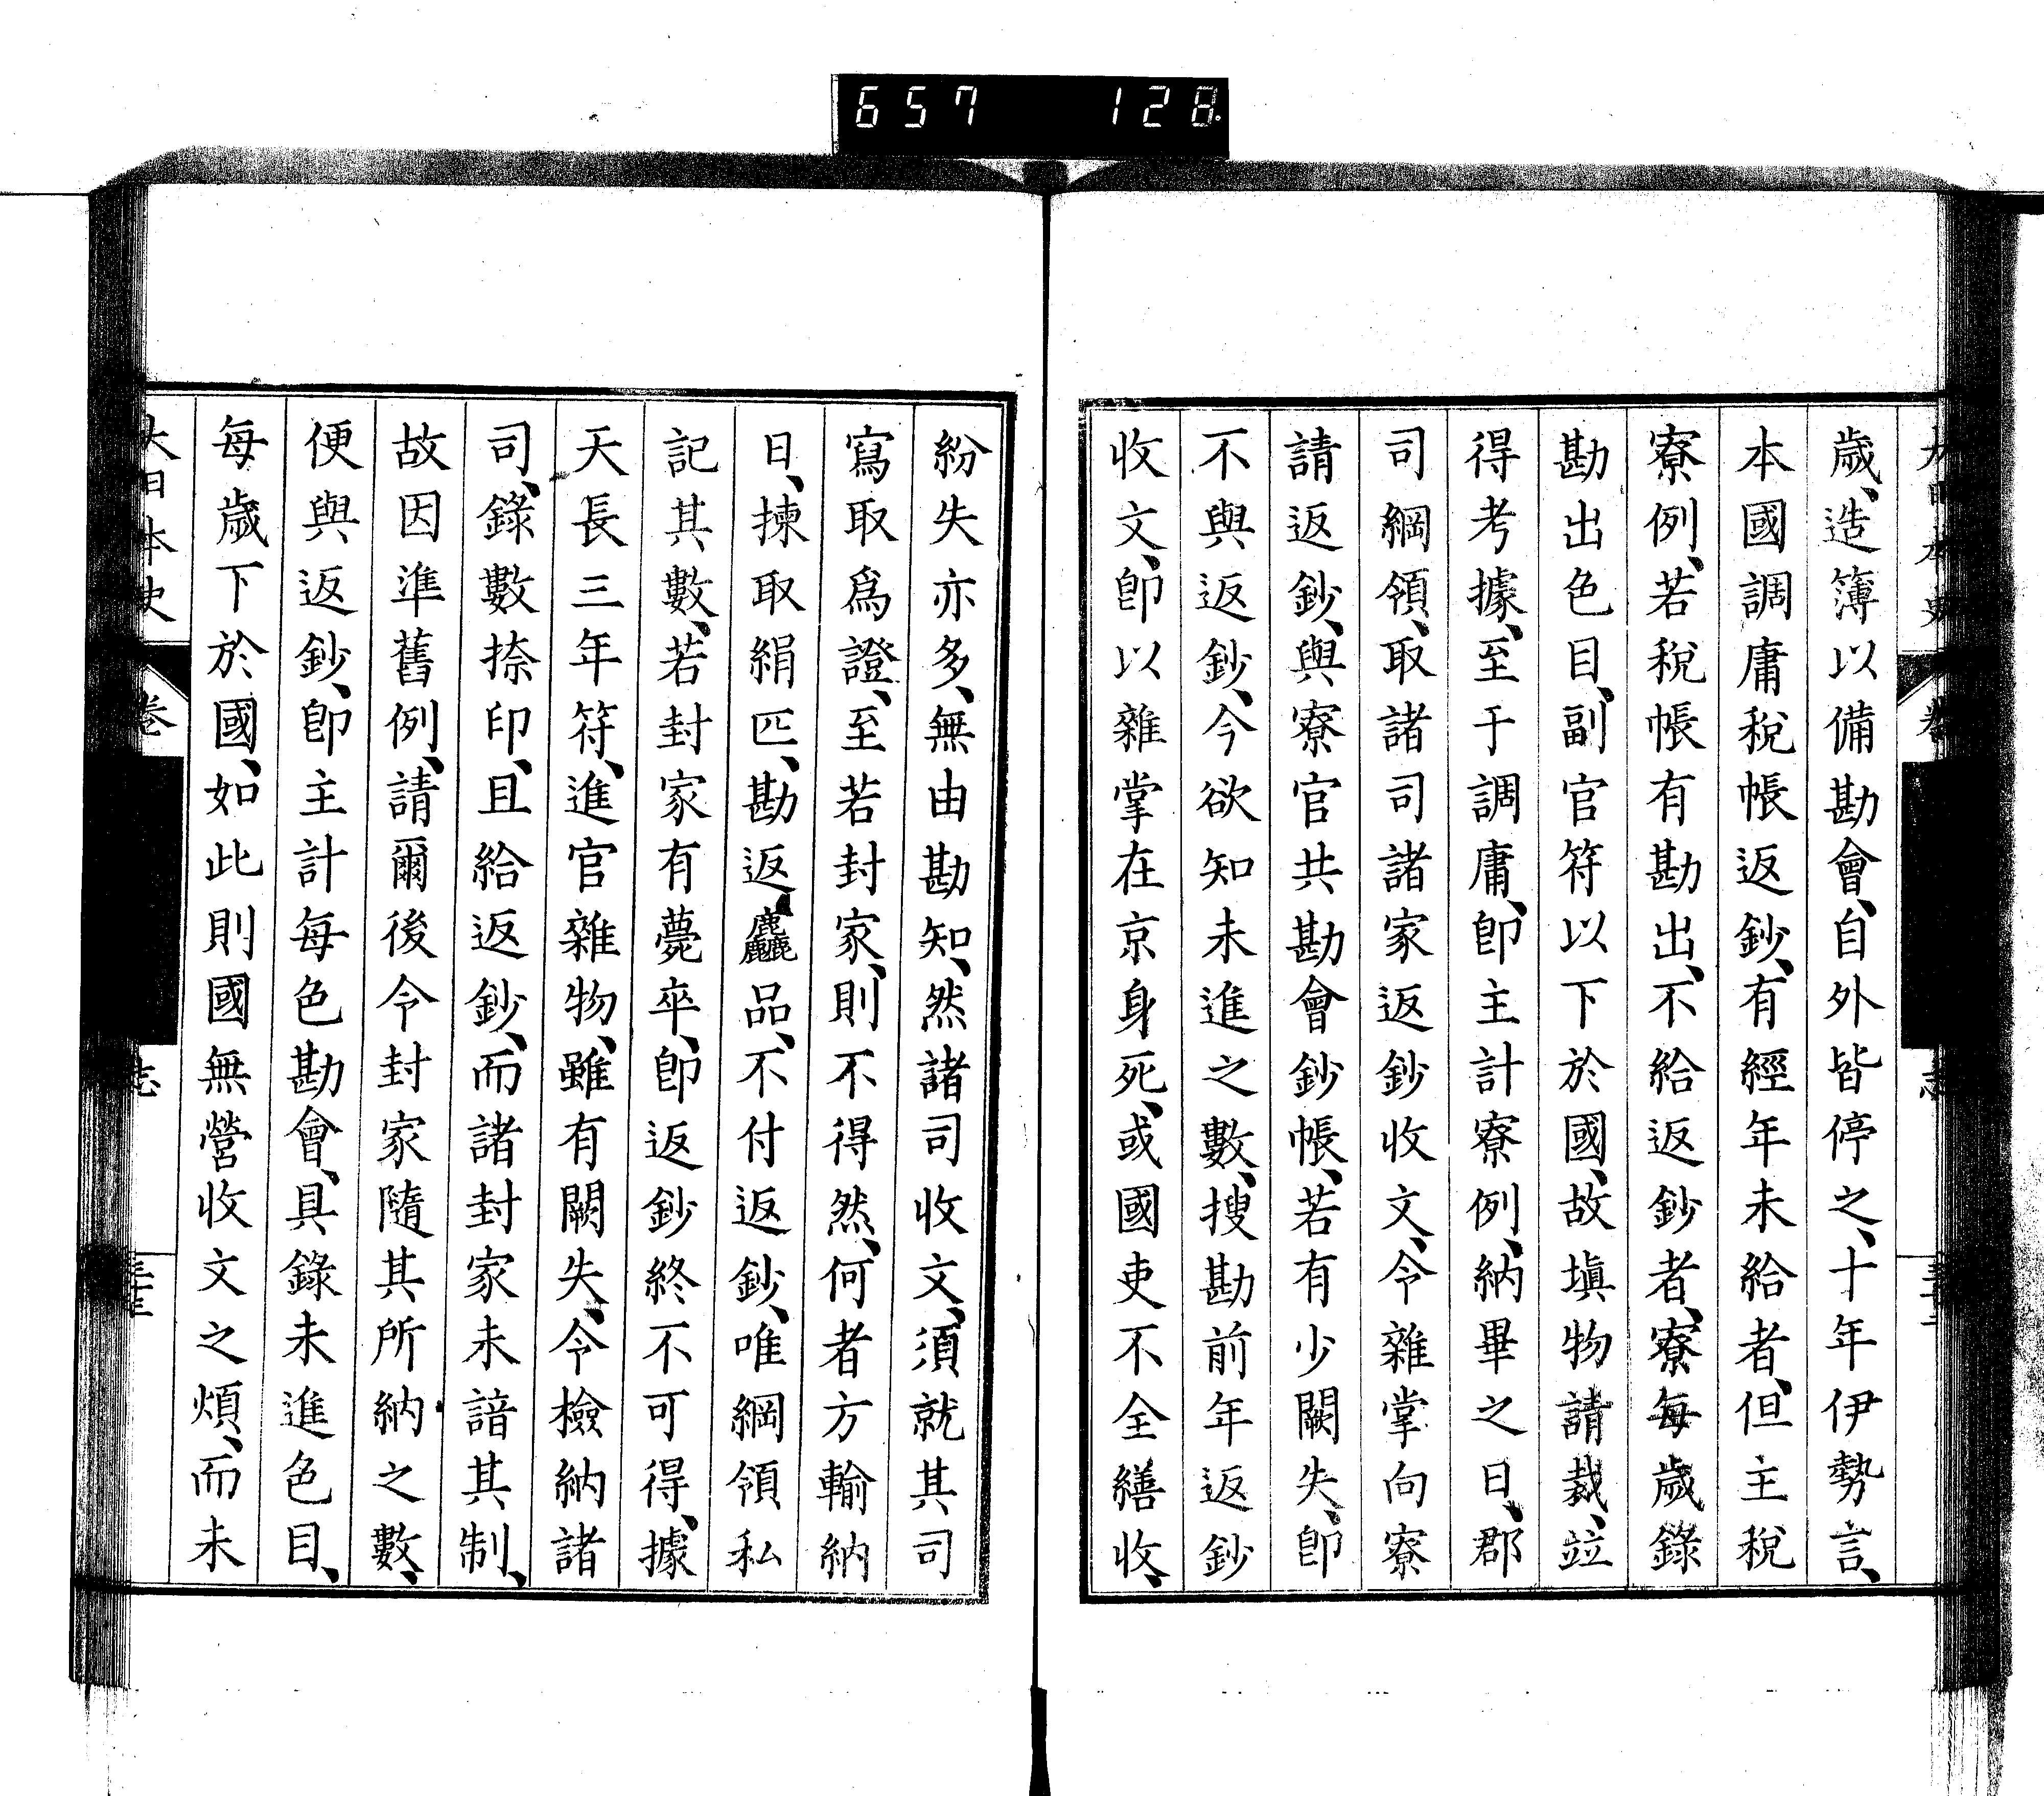 657 128
歲、造簿以備勘會、自外皆停之、十年伊勢言、
本國調庸稅帳返鈔、有經年未給者、但主稅
寮例、若稅帳有勘出、不給返鈔者、寮每歲錄
勘出色目、副官符以下於國、故塡物請裁、竝
得考據、至于調庸、卽主計寮例、納畢之日、郡
司綱領、取諸司諸家返鈔收文、令雜掌向寮
請返鈔、與寮官共勘會鈔帳、若有少闕失、卽
不與返鈔、今欲知未進之數、搜勘前年返鈔
收文、卽以雜掌在京身死、或國吏不全繕收、
紛失亦多、無由勘知、然諸司收文、須就其司
寫取爲證、至若封家、則不得然、何者方輸納
日、揀取絹匹、勘返麤品、不付返鈔、唯綱領私
記其數、若封家有薨卒、卽返鈔終不可得、據
天長三年符、進官雜物、雖有闕失、令檢納諸
司、錄數捺印、且給返鈔、而諸封家未諳其制、
故因準舊例、請爾後令封家隨其所納之數、
便與返鈔、卽主計每色勘會、具錄未進色目、
每歲下於國、如此則國無營收文之煩、而未
大日本史 卷 志